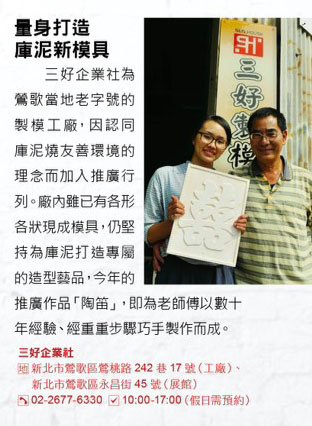 量身打造
庫泥新模具
三好企業社為
鶯歌當地老字號的
製模工廠，因認同
庫泥燒友善環境的
理念而加入推廣行
列。廠內雖已有各形
各狀現成模具，仍堅
持為庫泥打造專屬
的造型藝品，今年的
推廣作品「陶笛」，即為老師傅以數十
年經驗、經重重步驟巧手製作而成。
三好製模
三好企業社
地 新北市鶯歌區鶯桃路 242 巷 17 號（工廠）、
新北市鶯歌區永昌街 45 號（展館）
02-2677-6330 10:00-17:00（假日需預約）